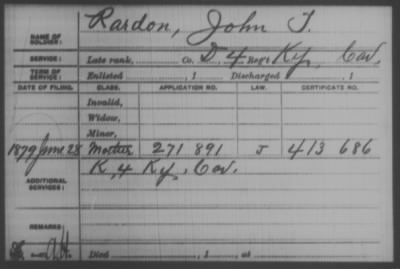 Rardon, John T.
NAME OF SOLDIER:
SERVICE: Late rank, Co. D, 4 Reg't Ky. Cav.
TERM OF SERVICE: Enlisted , 1 Discharged , 1
DATE OF FILING. CLASS. APPLICATION NO. LAW. CERTIFICATE NO.
Invalid,
Widow,
Minor,
1879 June 28 Mother 271 891 J 413 686
K, 4 Ky. Cav.
ADDITIONAL SERVICES:
REMARKS:
Died , 1 , at